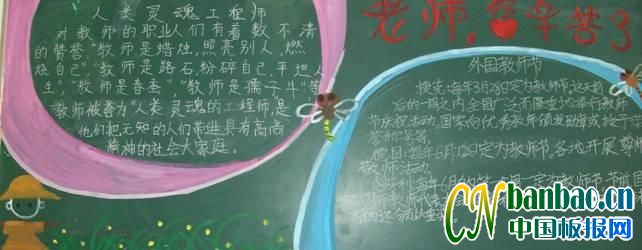 人类灵魂工程师
对教师的职业人们有着数不清
的赞誉"教师是蜡烛,照亮别人,燃
烧自己""教师是路石,粉碎自己,平坦人
生。""教师是春蚕""教师是孺子牛"等
教师被誉为"人类灵魂的工程师,是
他们把无知的人们带进具有高尚
精神的社会大家庭。
老师,辛苦了
外国教师节
捷克:每年3月28日定为教师节,这天前
后的一周之内全国广泛而隆重地举行教师
节庆祝活动。国家向优秀教师颁发勋章或授予
荣誉称号等。
德国:每年6月12日定为教师节。各地开展尊师
敬师活动。
每年6月的第
定为教师节
CN banbao.cn
中国板报网